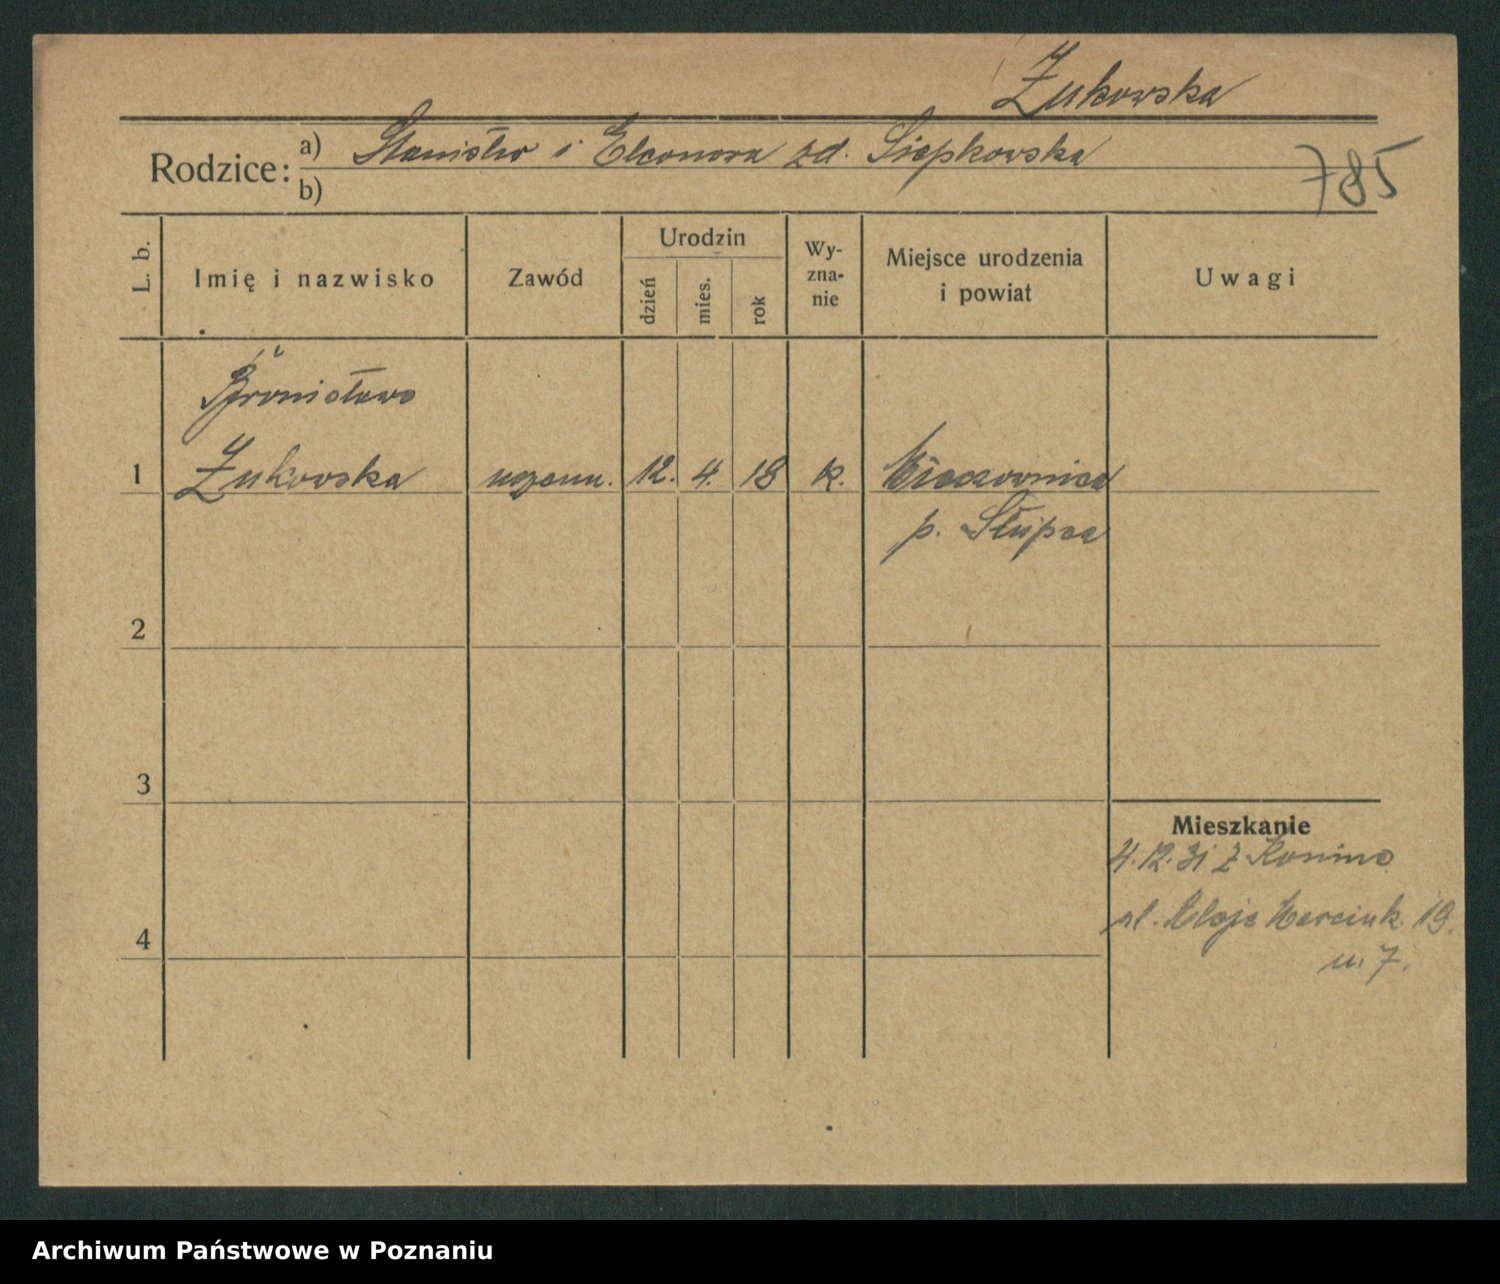 Żukowska
Rodzice: a) Stanisław i Eleonora zd. Siepkowska
b)
785
L. b.
Imię i nazwisko
Zawód
Urodzin
dzień
mies.
rok
Wy-
zna-
nie
Miejsce urodzenia
i powiat
Uwagi
Bronisława
1 Żukowska uczenn. 12. 4. 18 k. Mieczownica
p. Słupca
2
3
Mieszkanie
4. 12. 31 z Konina
pl. Marcink. 19.
4
m. 7.
Archiwum Państwowe w Poznaniu